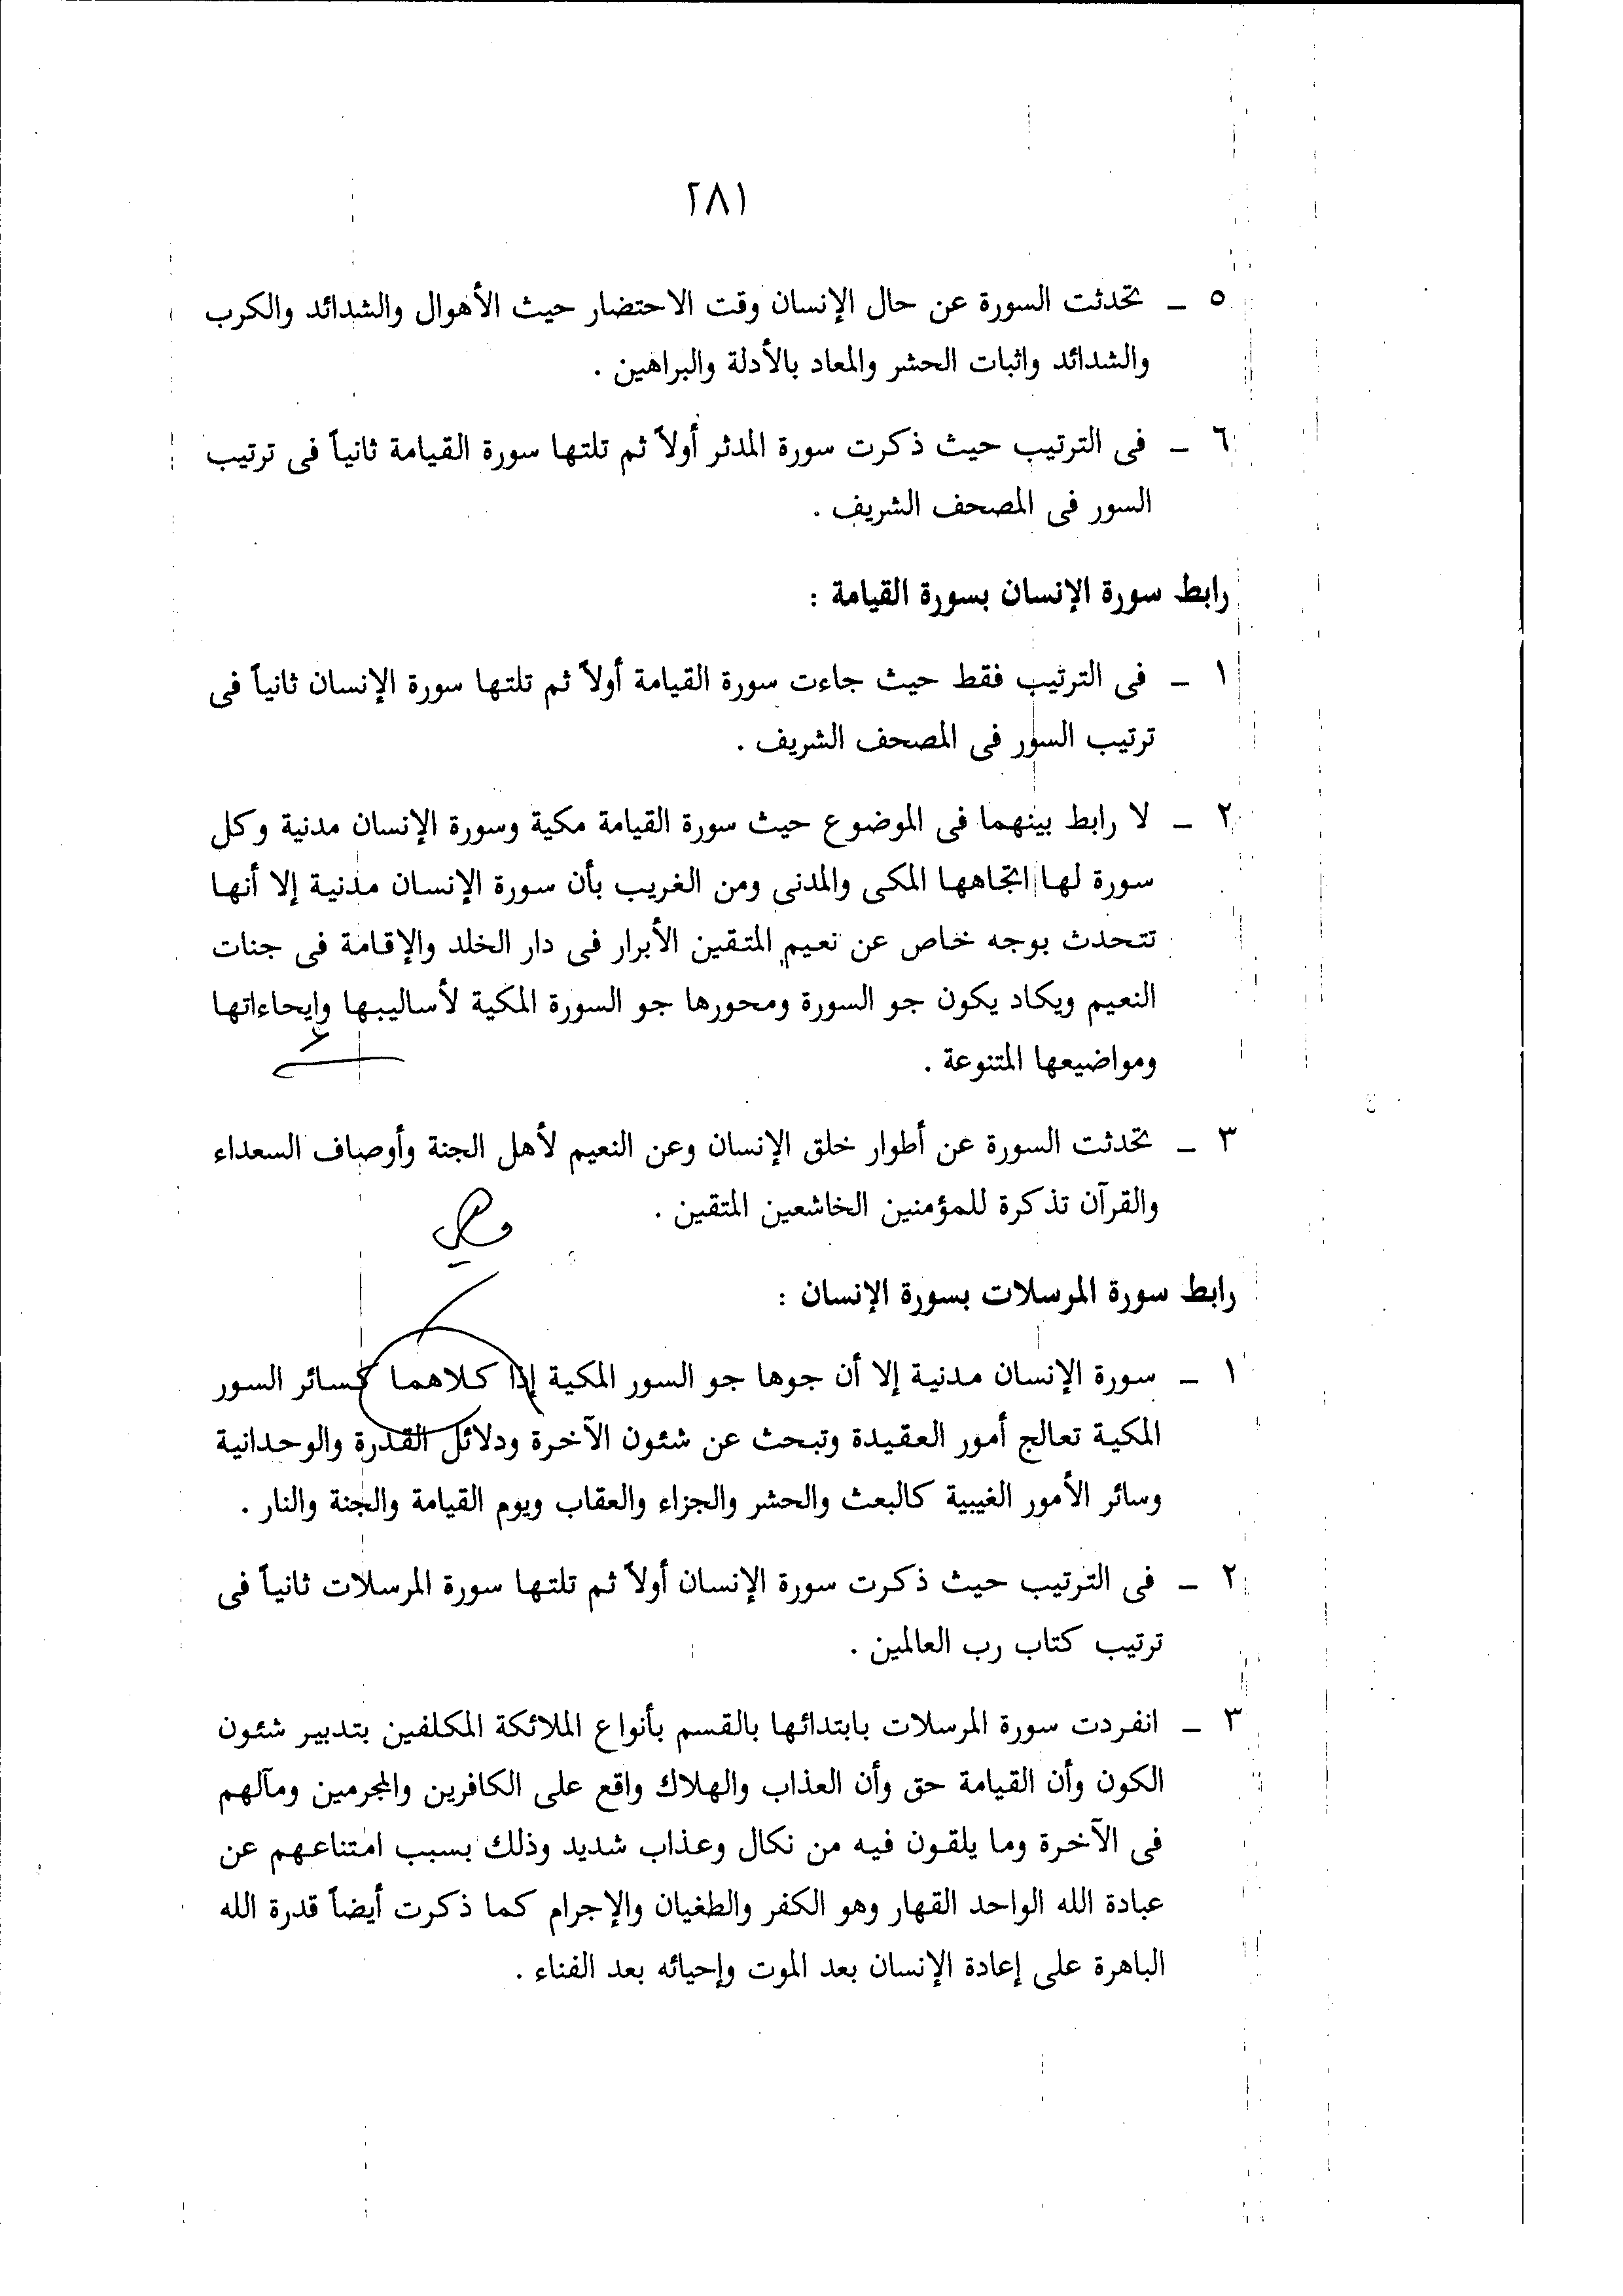 ٢٨١
٥ ـ تحدثت السورة عن حال الإنسان وقت الاحتضار حيث الأهوال والشدائد والكرب
والشدائد واثبات الحشر والمعاد بالأدلة والبراهين .
٦ ـ فى الترتيب حيث ذكرت سورة المدثر أولاً ثم تلتها سورة القيامة ثانياً فى ترتيب
السور فى المصحف الشريف .
رابط سورة الإنسان بسورة القيامة :
١ ـ فى الترتيب فقط حيث جاءت سورة القيامة أولاً ثم تلتها سورة الإنسان ثانياً فى
ترتيب السور فى المصحف الشريف .
٢ ـ لا رابط بينهما فى الموضوع حيث سورة القيامة مكية وسورة الإنسان مدنية وكل
سورة لها اتجاهها المكى والمدنى ومن الغريب بأن سورة الإنسان مدنية إلا أنها
تتحدث بوجه خاص عن نعيم المتقين الأبرار فى دار الخلد والإقامة فى جنات
النعيم ويكاد يكون جو السورة ومحورها جو السورة المكية لأساليبها وإيحاءاتها
ومواضيعها المتنوعة .
٣ ـ تحدثت السورة عن أطوار خلق الإنسان وعن النعيم لأهل الجنة وأوصاف السعداء
والقرآن تذكرة للمؤمنين الخاشعين المتقين .
رابط سورة المرسلات بسورة الإنسان :
١ ـ سورة الإنسان مدنية إلا أن جوها جو السور المكية إذا كلاهما كسائر السور
المكية تعالج أمور العقيدة وتبحث عن شئون الآخرة ودلائل القدرة والوحدانية
وسائر الأمور الغيبية كالبعث والحشر والجزاء والعقاب ويوم القيامة والجنة والنار .
٢ ـ فى الترتيب حيث ذكرت سورة الإنسان أولاً ثم تلتها سورة المرسلات ثانياً فى
ترتيب كتاب رب العالمين .
٣ ـ انفردت سورة المرسلات بابتدائها بالقسم بأنواع الملائكة المكلفين بتدبير شئون
الكون وأن القيامة حق وأن العذاب والهلاك واقع على الكافرين والمجرمين ومآلهم
فى الآخرة وما يلقون فيه من نكال وعذاب شديد وذلك بسبب امتناعهم عن
عبادة الله الواحد القهار وهو الكفر والطغيان والإجرام كما ذكرت أيضاً قدرة الله
الباهرة على إعادة الإنسان بعد الموت وإحيائه بعد الفناء .